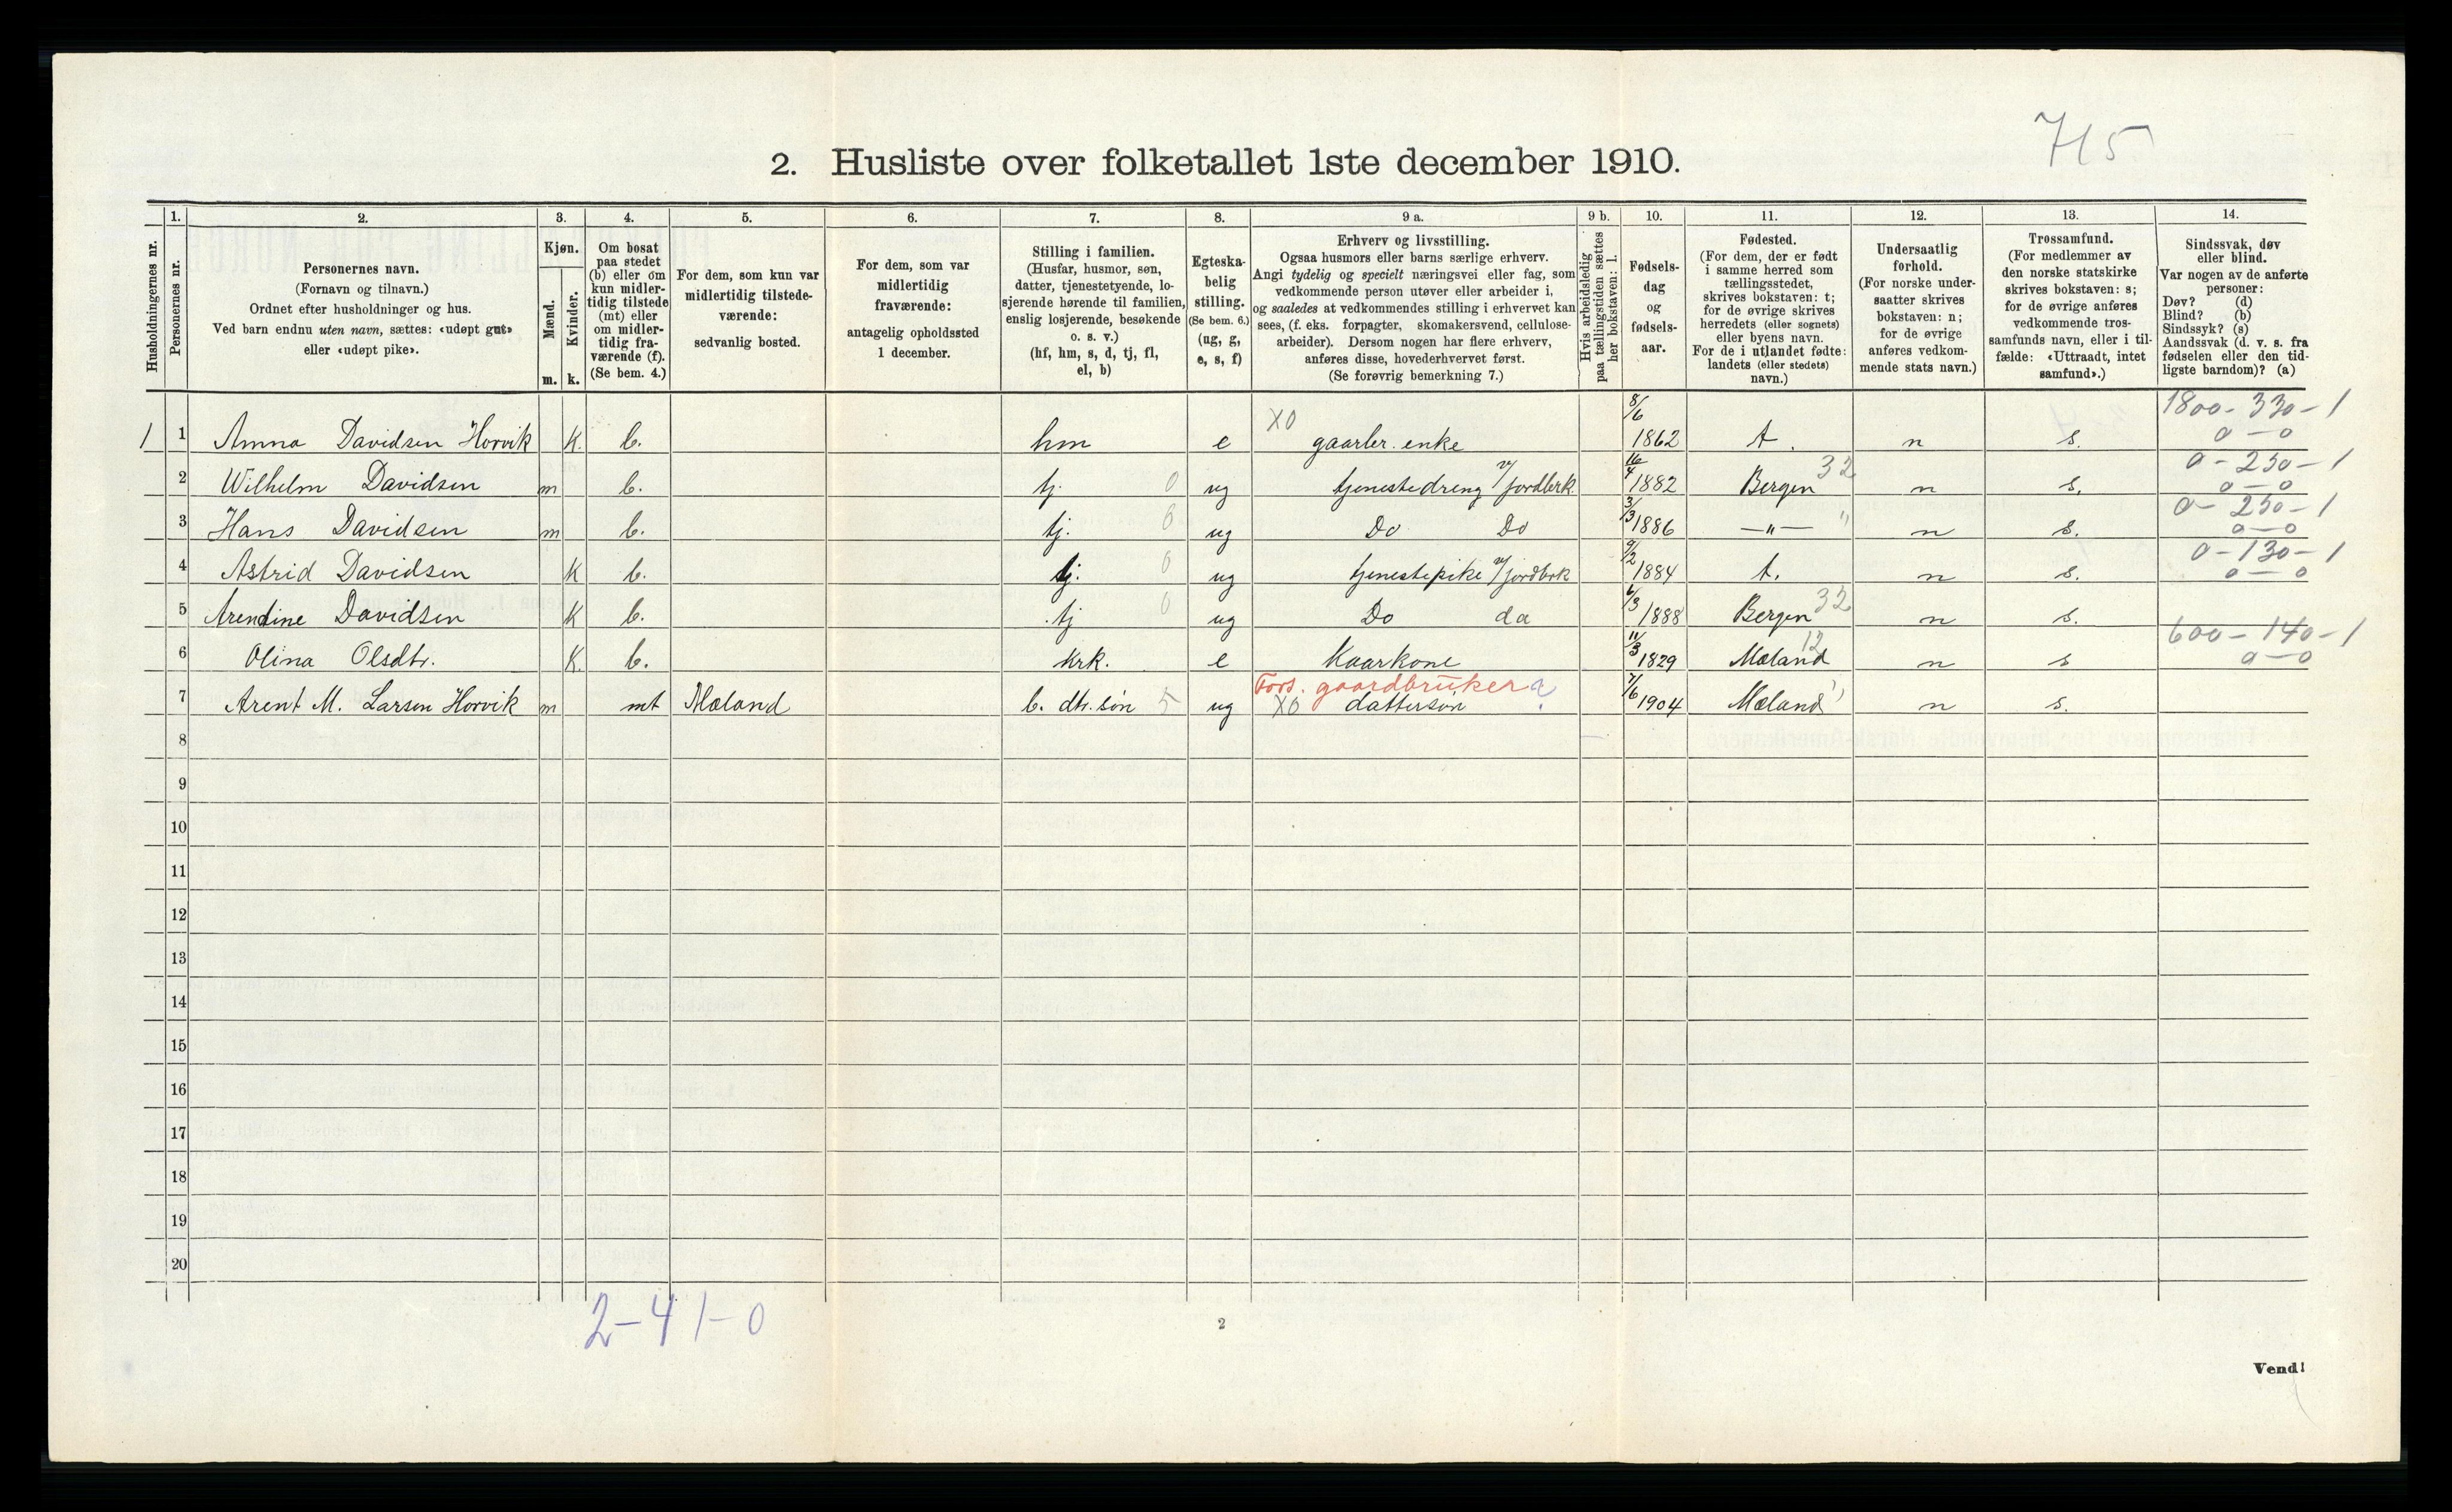 715
2. Husliste over folketallet 1ste december 1910.
Husholdningernes nr.
1. Personernes nr.
2. Personernes navn.
(Fornavn og tilnavn.)
Ordnet efter husholdninger og hus.
Ved barn endnu uten navn, sættes: «udøpt gut»
eller «udøpt pike».
3. Kjøn.
Mænd. Kvinder.
m. k.
4. Om bosat
paa stedet
(b) eller om
kun midler-
tidig tilstede
(mt) eller
om midler-
tidig fra-
værende (f).
(Se bem. 4.)
5. For dem, som kun var
midlertidig tilstede-
værende:
sedvanlig bosted.
6. For dem, som var
midlertidig
fraværende:
antagelig opholdssted
1 december.
7. Stilling i familien.
(Husfar, husmor, søn,
datter, tjenestetyende, lo-
sjerende hørende til familien,
enslig losjerende, besøkende
o. s. v.)
(hf, hm, s, d, tj, fl,
el, b)
8. Egteska-
belig
stilling.
(Se bem. 6.)
(ug, g,
e, s, f)
9 a. Erhverv og livsstilling.
Ogsaa husmors eller barns særlige erhverv.
Angi tydelig og specielt næringsvei eller fag, som
vedkommende person utøver eller arbeider i,
og saaledes at vedkommendes stilling i erhvervet kan
sees, (f. eks. forpagter, skomakersvend, cellulose-
arbeider). Dersom nogen har flere erhverv,
anføres disse, hovederhvervet først.
(Se forøvrig bemerkning 7.)
9 b. Hvis arbeidsledig
paa tællingstiden sættes
her bokstaven: l.
10. Fødsels-
dag
og
fødsels-
aar.
11. Fødested.
(For dem, der er født
i samme herred som
tællingsstedet,
skrives bokstaven: t;
for de øvrige skrives
herredets (eller sognets)
eller byens navn.
For de i utlandet fødte:
landets (eller stedets)
navn.)
12. Undersaatlig
forhold.
(For norske under-
saatter skrives
bokstaven: n;
for de øvrige
anføres vedkom-
mende stats navn.)
13. Trossamfund.
(For medlemmer av
den norske statskirke
skrives bokstaven: s;
for de øvrige anføres
vedkommende tros-
samfunds navn, eller i til-
fælde: «Uttraadt, intet
samfund».)
14. Sindssvak, døv
eller blind.
Var nogen av de anførte
personer:
Døv? (d)
Blind? (b)
Sindssyk? (s)
Aandssvak (d. v. s. fra
fødselen eller den tid-
ligste barndom)? (a)
1 1 Anna Davidsen Horvik K. b. hm e XO gaarbr. enke 8/6 1862 t. n s. 1800-330-1 0-0
2 Wilhelm Davidsen m b. tj. 0 ug tjenestedreng v/jordbrk. 16/4 1882 Bergen 32 n s. 0-250-1 0-0
3 Hans Davidsen m b. tj. 0 ug Do Do 3/3 1886 —"— " n s. 0-250-1 0-0
4 Astrid Davidsen K b. tj. 0 ug tjenestepike v/jordbrk 9/2 1884 t. n s. 0-130-1 0-0
5 Arendine Davidsen K b. tj 0 ug Do do 6/3 1888 Bergen 32 n s.
6 Olina Olsdtr. K. b. krk. e Kaarkone 11/3 1829 Mæland 12 n s 600-140-1 0-0
Fors. gaardbruker
7 Arent M. Larsen Horvik m mt Mæland b. dtr. søn 5 ug XO dattersøn 7/6 1904 Mæland " n s.
8
9
10
11
12
13
14
15
16
17
18
19
20
2-4 1-0
2
Vend!